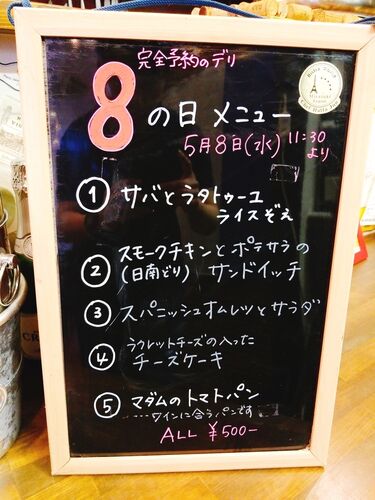 完全予約のデリ
8の日 メニュー
5月8日(水) 11:30
より
① サバとラタトゥーユ
ライスぞえ
② スモークチキンとポテサラの
(日南どり) サンドイッチ
③ スパニッシュオムレツとサラダ
④ ラクレットチーズの入った
チーズケーキ
⑤ マダムのトマトパン
ワインに合うパンです
ALL ¥500-